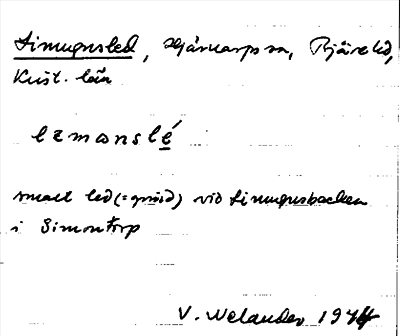 Simugnsled, Hjärnarps sn, Bjäre hd,
Krist. län
smalt led (= grind) vid Simugnsbacken
i Simontorp
V. Welander 1974